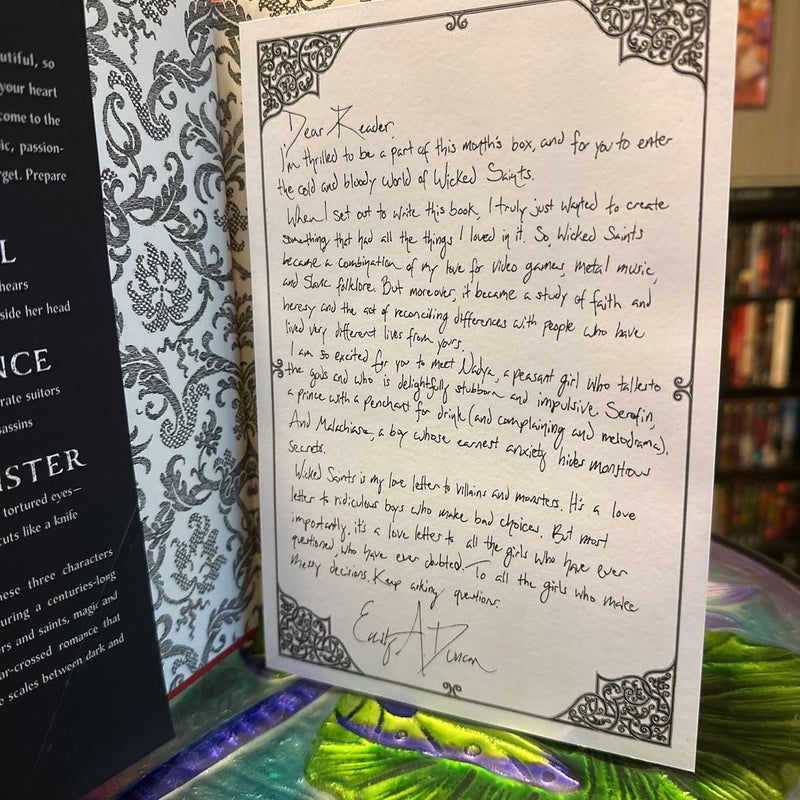 utiful, so
your heart
come to the
ic, passion-
rget. Prepare
L
hears
side her head
NCE
rate suitors
assins
STER
tortured eyes—
cuts like a knife
hese three characters
uring a centuries-long
rs and saints, magic and
ar-crossed romance that
e scales between dark and
Dear Reader,
I'm thrilled to be a part of this month's box, and for you to enter
the cold and bloody world of Wicked Saints.
When I set out to write this book, I truly just wanted to create
something that had all the things I loved in it. So, Wicked Saints
became a combination of my love for video games, metal music,
and Slavic folklore. But moreover, it became a study of faith and
heresy and the act of reconciling differences with people who have
lived very different lives from yours.
I am so excited for you to meet Nadya, a peasant girl who talks to
the gods and who is delightfully stubborn and impulsive. Serefin,
a prince with a penchant for drink (and complaining and melodrama).
And Malachiasz, a boy whose earnest anxiety hides monstrous
secrets.
Wicked Saints is my love letter to villains and monsters. It's a love
letter to ridiculous boys who make bad choices. But most
importantly, it's a love letter to all the girls who have ever
questioned, who have ever doubted. To all the girls who make
messy decisions. Keep asking questions.
Emily A Duncan